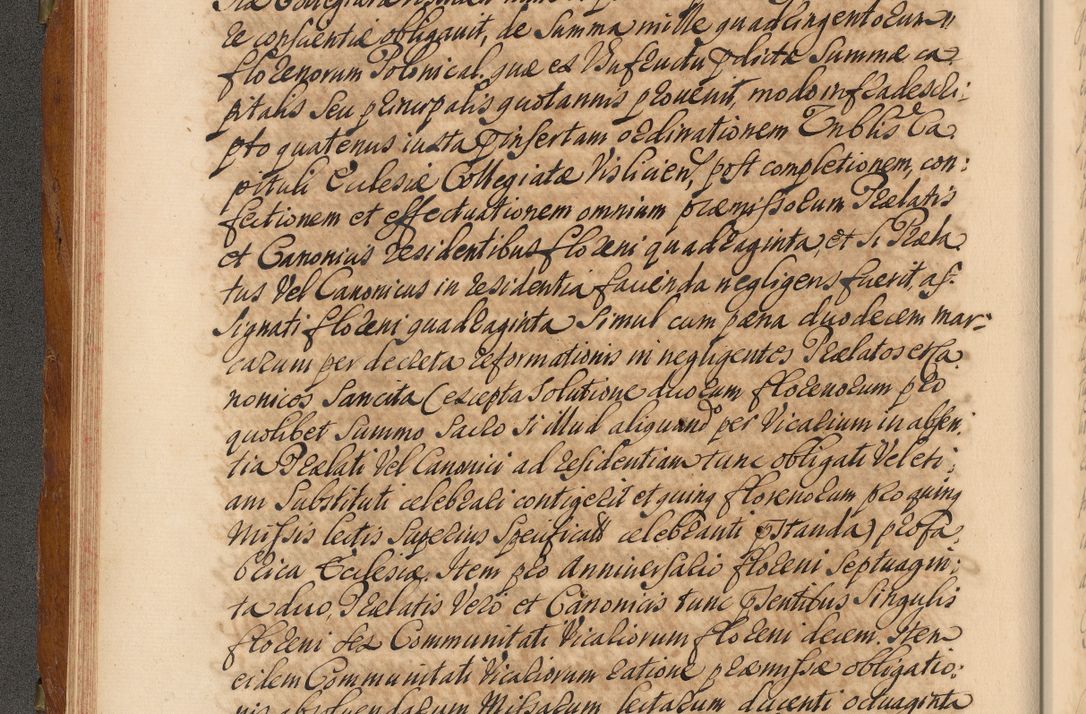 te conscientiæ obligavit, de Summa mille quadringentorum
florenorum Polonical. quæ ex Usufructu pdictæ Summæ ca=
pitalis seu principalis quotannis provenit, modo infradescri=
pto quatenus iuxta pinsertam ordinationem Inblis Ca
pituli Ecclesiæ Collegiatæ Vislicien, post completionem, con=
fectionem et effectuationem omnium præmissorum Prælatis
et Canonicis residentibus floreni quadraginta, et si Præla
tus Vel Canonicus in residentia facienda negligens fuerit, as=
signati floreni quadraginta Simul cum pæna duodecem mar=
carum per decreta reformationis in negligentes Prælatos et Ca
nonicos Sancita (excepta solutione duorum florenorum pro
quolibet Summo Sacro si illud aliquando per Vicarium in absen
tia Prælati Vel Canonici ad residentiam tunc obligati Vel eti=
am Substituti celebrari contigerit et quinq florenorum pro quinq
Missis lectis Superius Specificatis celebranti pstanda) pro fa=
brica Ecclesiæ. Item pro Anniversario floreni Septuagin=
ta duo, Prælatis Vero et Canonicis tunc psentibus Singulis
floreni sex Communitati Vicariorum floreni decem. Item
eidem Communitati Vicariorum ratione præmissæ obligatio=
nis absolvendarum Missarum lectarum ducenti octuaginta